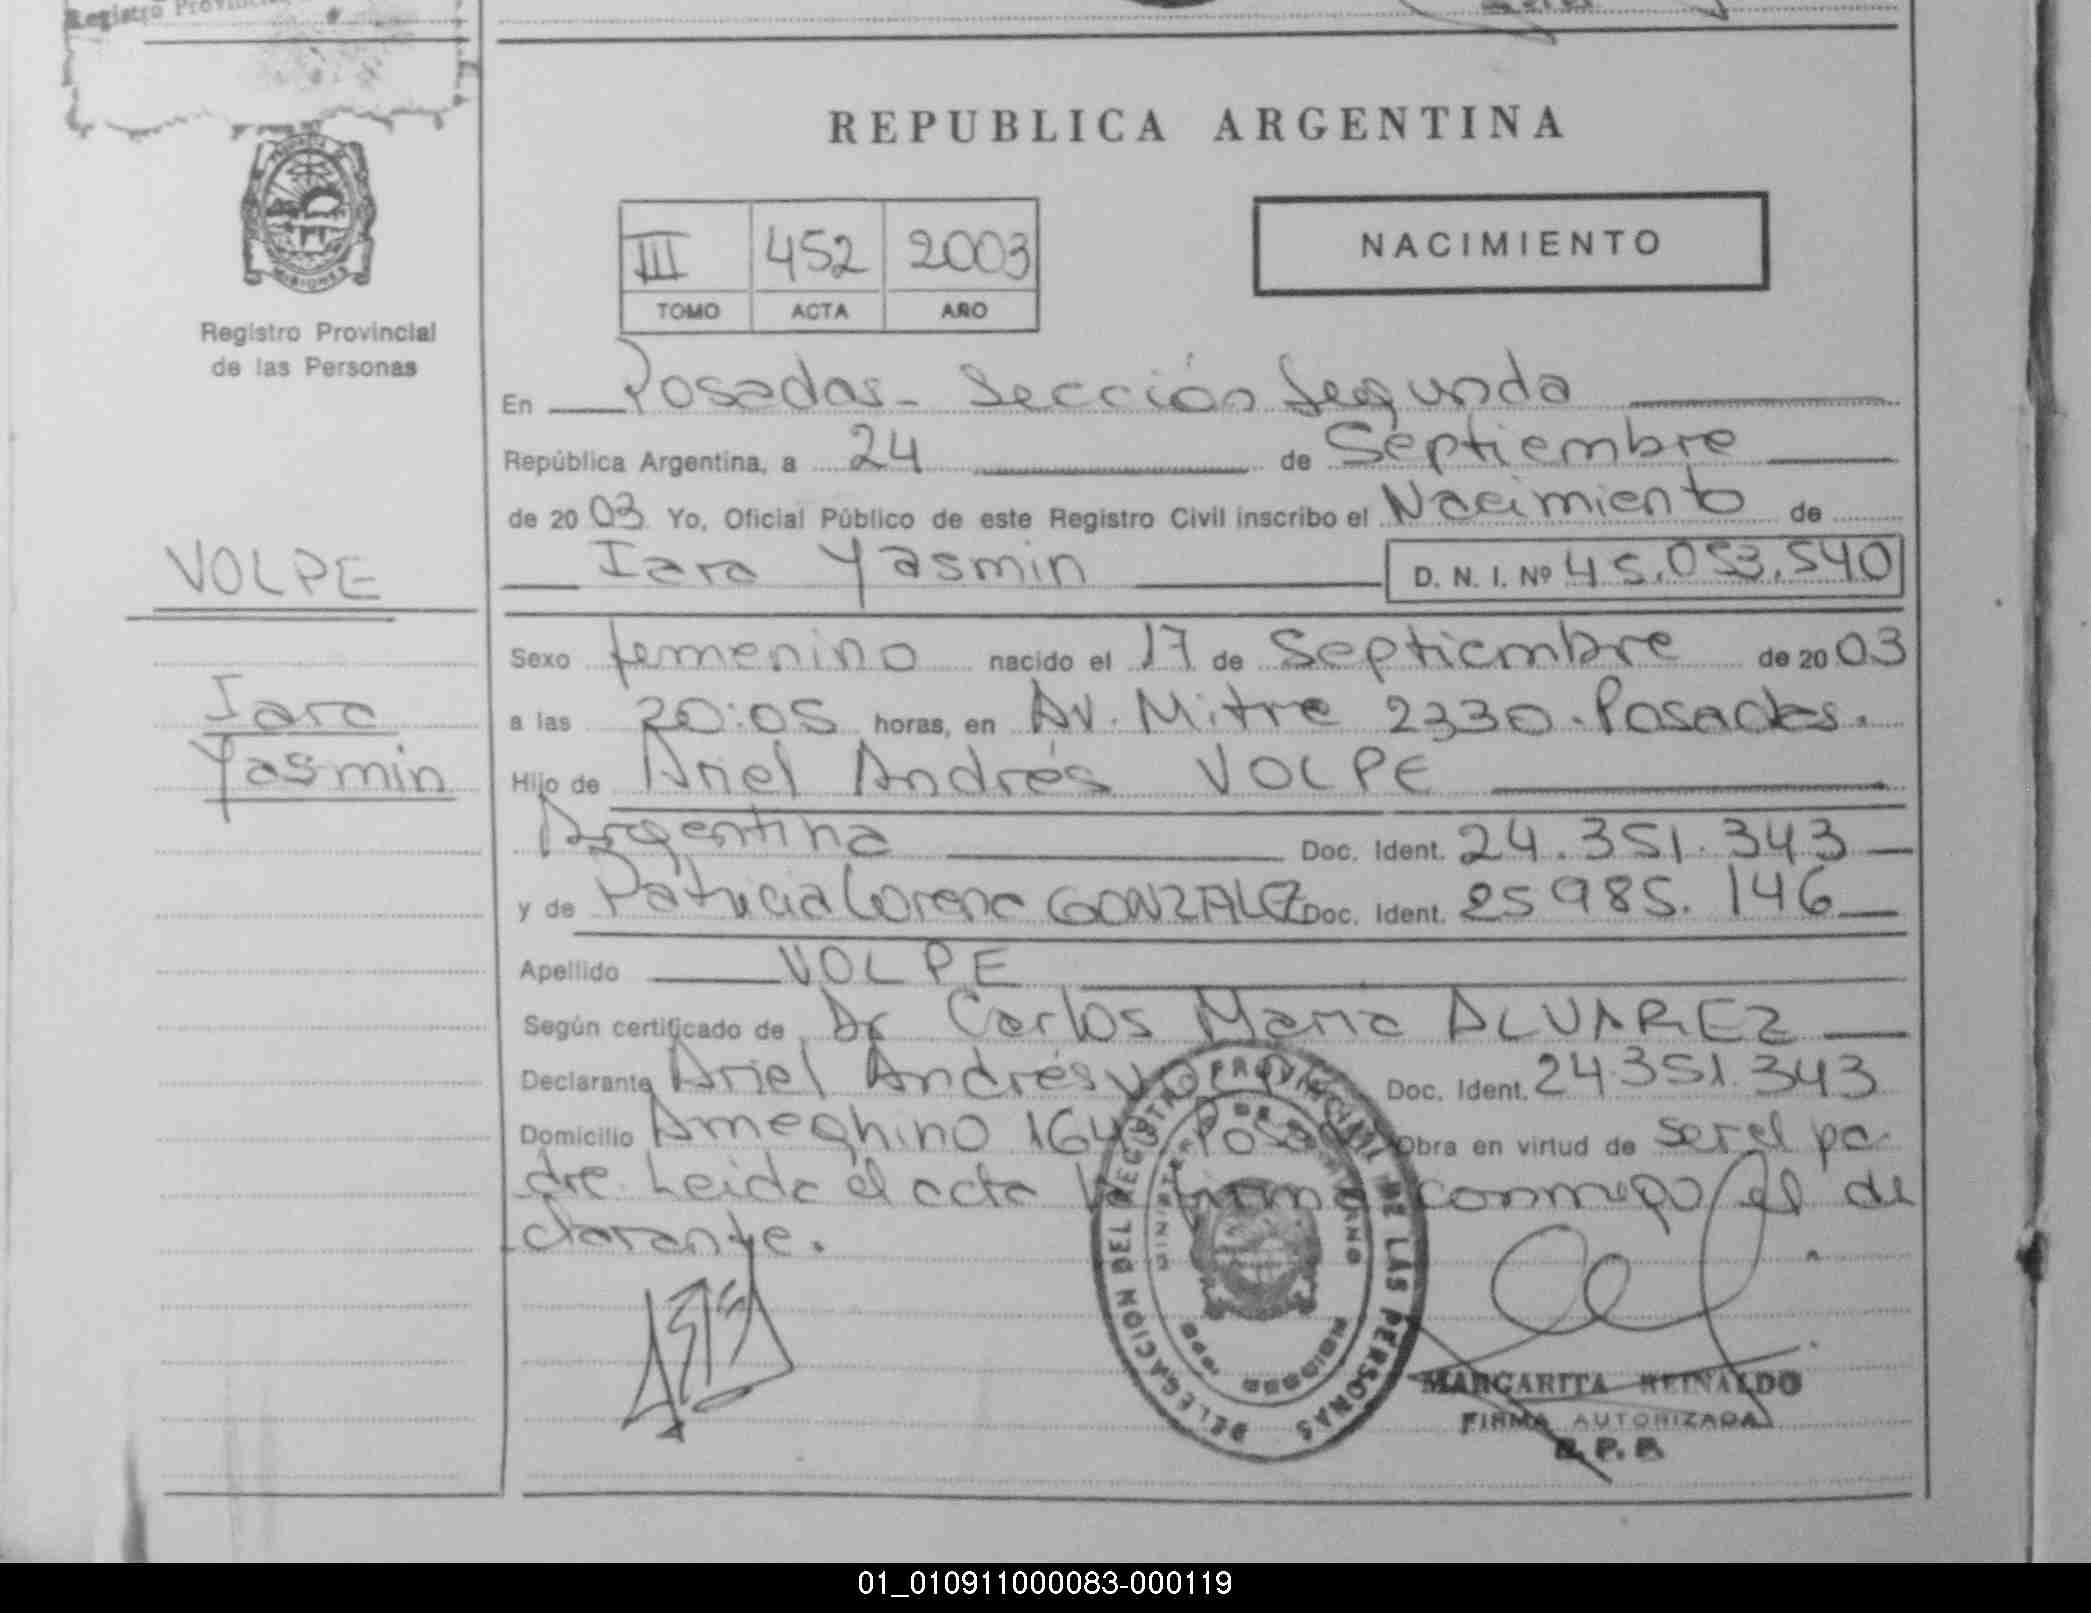 Registro Provincial
REPUBLICA ARGENTINA
NACIMIENTO
III 452 2003
TOMO ACTA AÑO
Registro Provincial
de las Personas
En Posadas - Sección Segunda
República Argentina, a 24 de Septiembre
de 2003 Yo, Oficial Público de este Registro Civil inscribo el Nacimiento de
Iara Yasmin D. N. I. Nº 45.053.540
VOLPE
Iara
Yasmin
Sexo femenino nacido el 17 de Septiembre de 2003
a las 20:05 horas, en Av. Mitre 2330 - Posadas.
Hijo de Ariel Andrés VOLPE
Argentina Doc. Ident. 24.351.343
y de Patricia Lorena GONZALEZ Doc. Ident. 25985.146
Apellido VOLPE
Según certificado de Dr Carlos Maria ALVAREZ
Declarante Ariel Andrés VOLPE Doc. Ident. 24.351.343
Domicilio Ameghino Obra en virtud de ser el pa-
dre. Leida el acta firma conmigo el de
clarante.
DELEGACIÓN DEL REGISTRO PROVINCIAL DE LAS PERSONAS
MARGARITA REINALDO
FIRMA AUTORIZADA
R. P. P.
01_010911000083-000119